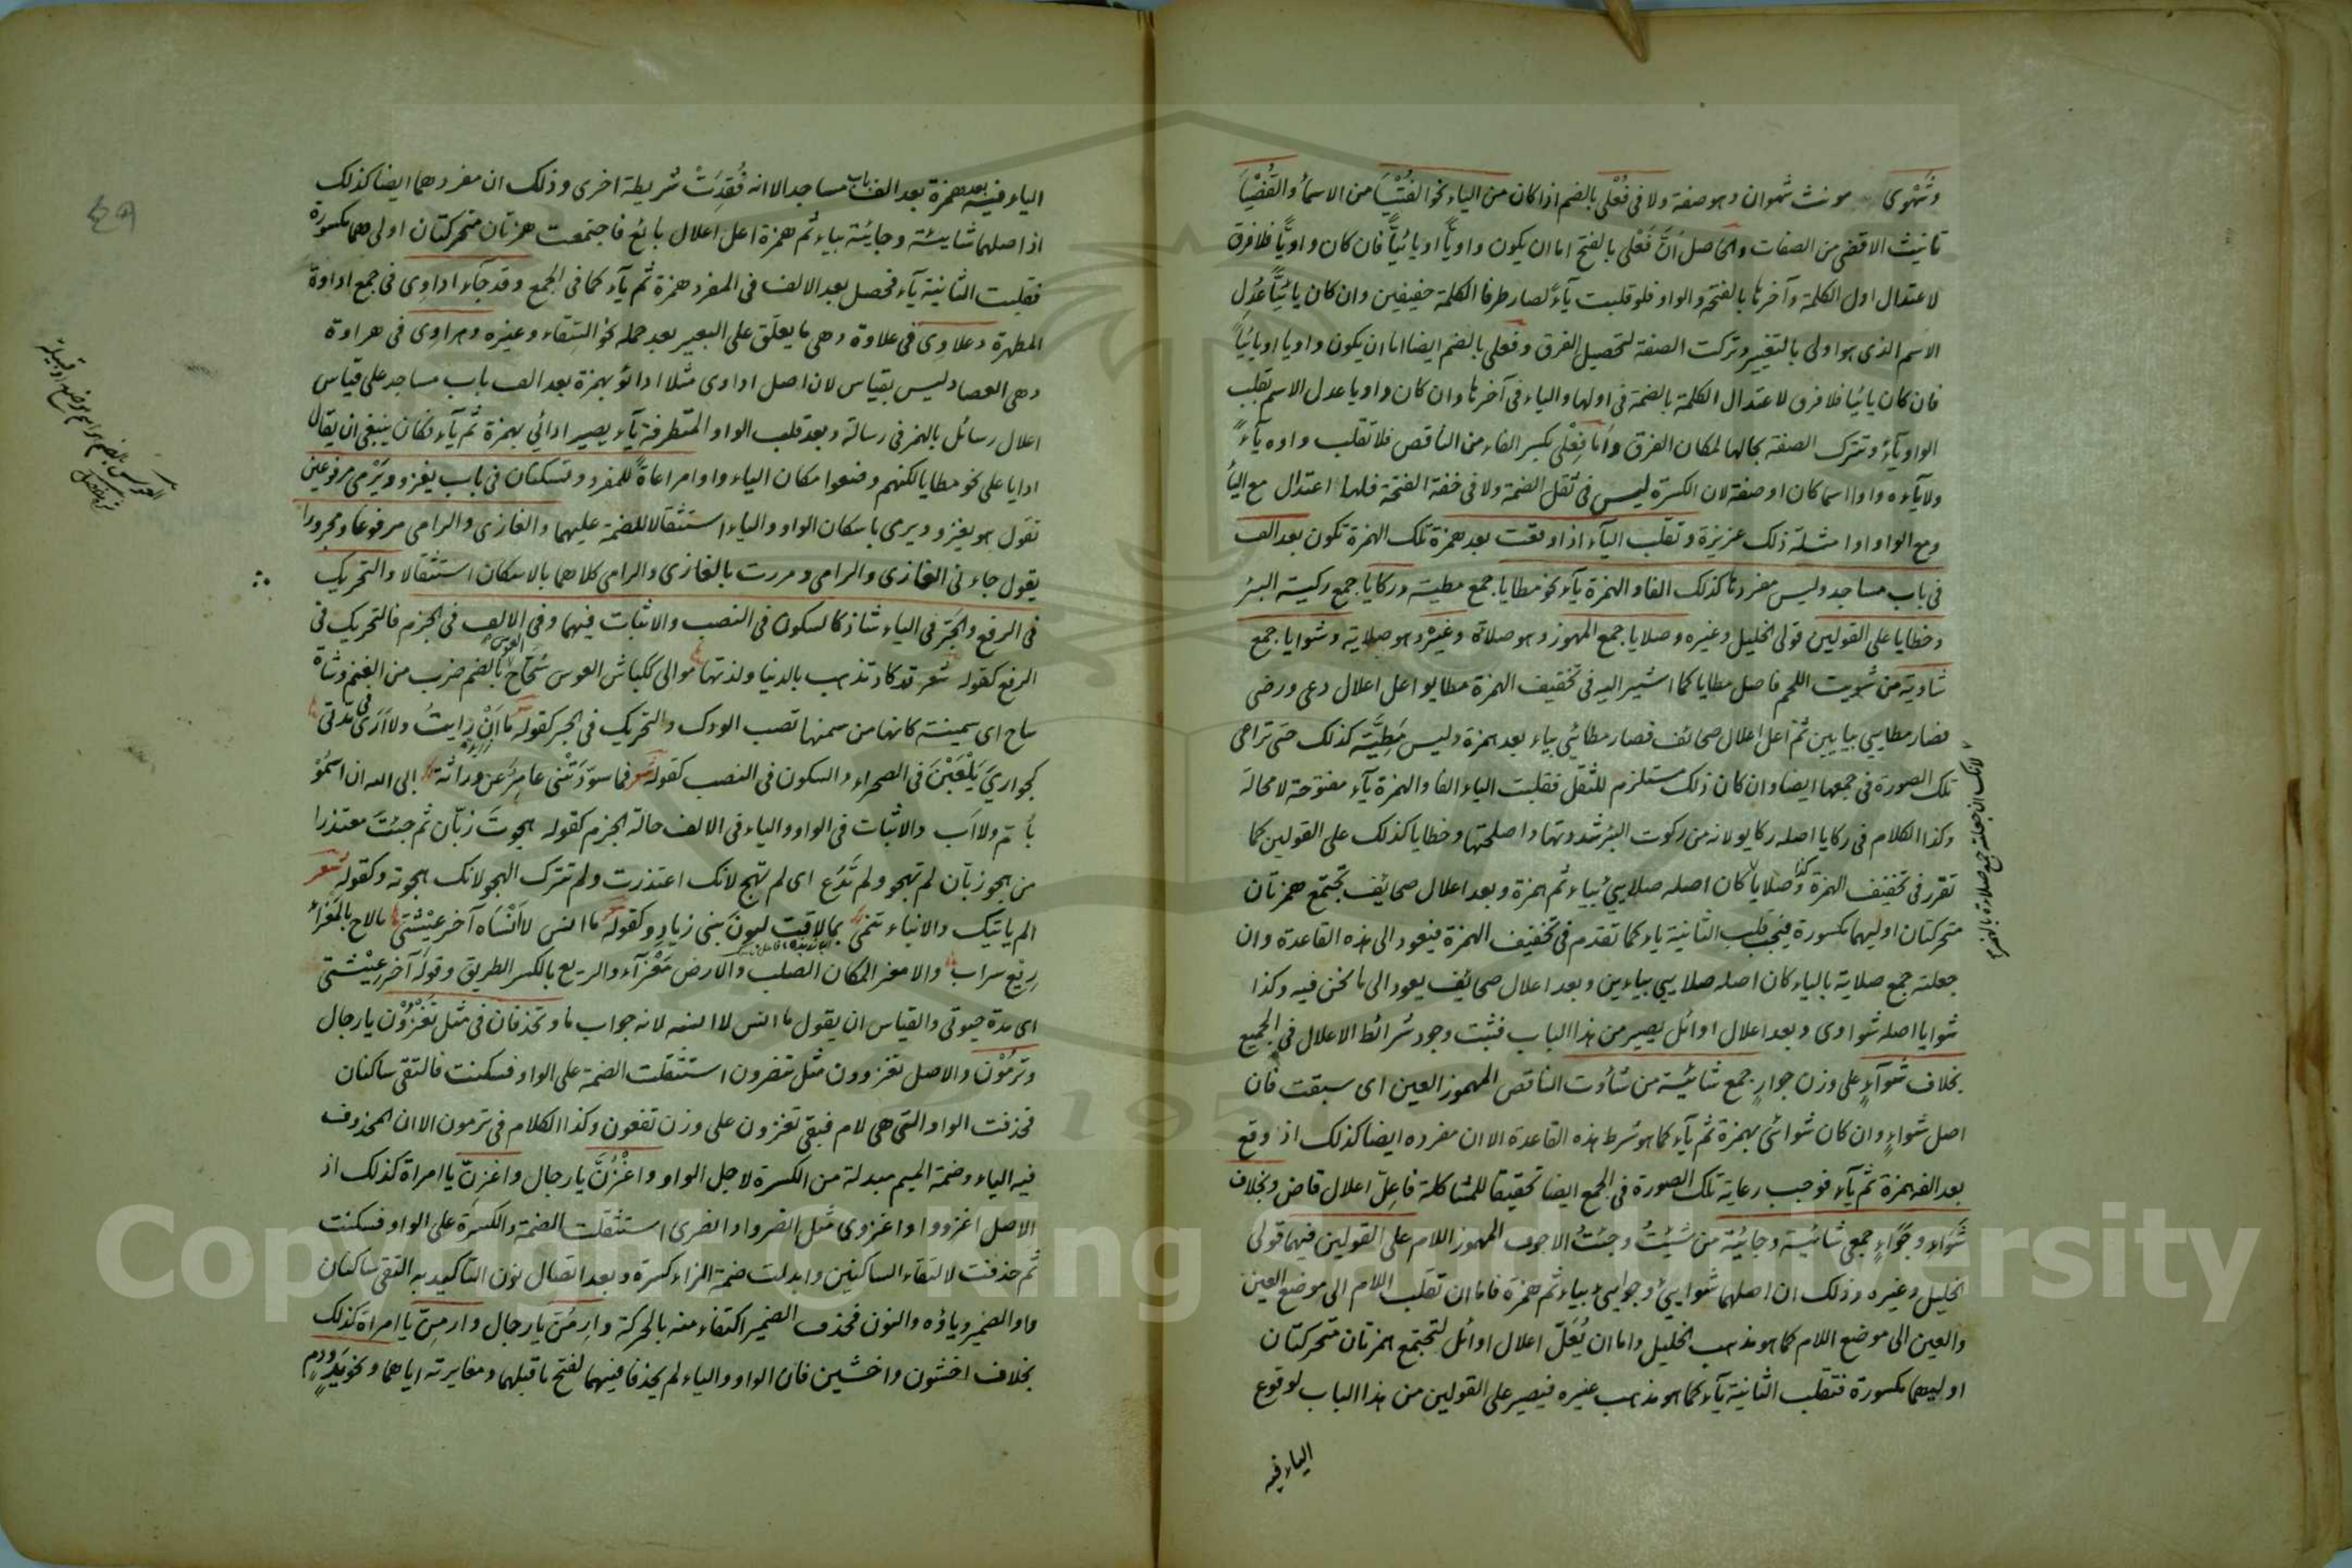 وشَهْوى مونث شهوان وهو صفة ولا فى فُعْلى بالضم اذا كان من الياء نحو الفُتْيَا من الاسماء والقُضْيَا
تانيث الاقضى من الصفات والحاصل أنَّ فَعْلى بالفتح اما ان يكون واويًّا او يائيًّا فان كان واويًّا فلا فرق
لاعتدال اول الكلمة وآخرها بالفتحة والواو فلو قلبت ياءً لصار طرفا الكلمة خفيفين وان كان يائيًّا عُدِل
الاسم الذى هو اولى بالتغيير وتركت الصفة لتحصيل الفرق وفُعلى بالضم ايضا اما ان يكون واويا او يائيًا
فان كان يائيا فلا فرق لاعتدال الكلمة بالضمة فى اولها والياء فى آخرها وان كان واويا عدل الاسم تقلب
الواو ياءً وتترك الصفة بحالها لمكان الفرق وأما فِعْلى بكسر الفاء من الناقص فلا تقلب واوه ياءً
ولا ياؤه واوا اسما كان او صفة لان الكسرة ليس فى ثقل الضمة ولا فى خفة الفتحة فلها اعتدال مع الياء
ومع الواو وامثلة ذلك عزيزة وتقلب الياء اذا وقعت بعد همزة تلك الهمزة تكون بعد الف
فى باب مساجد وليس مفردها كذلك الفا والهمزة ياء نحو مطايا جمع مطية وركايا جمع ركية البئر
وخطايا على القولين قولى الخليل وغيره وصلايا جمع المهموز وهو صلاءة وغيره وهو صلاية وشوايا جمع
شاوية من شويت اللحم فاصل مطايا كما اشير اليه فى تخفيف الهمزة مطايو اعل اعلال دعى ورضى
فصار مطايى بيايين ثم اعل اعلال صحائف فصار مطائى بياء بعد همزة وليس مَطِيَّة كذلك حتى تراعى
تلك الصورة فى جمعها ايضا وان كان ذلك مستلزم للثقل فقلبت الياء الفا والهمزة ياء مفتوحة لا محالة
وكذا الكلام فى ركايا اصله ركايو لانه من ركوت البئر شددتها واصلحتها وخطايا كذلك على القولين كما
تقرر فى تخفيف الهمزة وكذا صلايا لانه كان اصله صلايئ بياء ثم همزة وبعد اعلال صحائف تجتمع همزتان
متحركتان اوليهما مكسورة فيجب قلب الثانية ياء كما تقدم فى تخفيف الهمزة فيعود الى هذه القاعدة وان
جعلته جمع صلاية بالياء كان اصله صلايى بياءين وبعد اعلال صحائف يعود الى ما نحن فيه وكذا
شوايا اصله شواوى وبعد اعلال اوائل يصير من هذا الباب فثبت وجود شرائط الاعلال فى الجميع
بخلاف شَوَآءٍ على وزن جوارٍ جمع شائية من شأوت الناقص المهموز العين اى سبقت فان
اصل شواءٍ وان كان شوائى بهمزة ثم ياء كما هو شرط هذه القاعدة الا ان مفرده ايضا كذلك اذ وقع
بعد الفه همزة ثم ياء فوجب رعاية تلك الصورة فى الجمع ايضا تحقيقا للمشاكلة فاعل اعلال قاض وبخلاف
شَوَاءٍ وجَوَاءٍ جمعى شائية وجائية من شئتُ وجئتُ الاجوف المهموز اللام على القولين فيهما قولى
الخليل وغيره وذلك ان اصلهما شوايئ وجوايئ بياء ثم همزة فاما ان تقلب اللام الى موضع العين
والعين الى موضع اللام كما هو مذهب الخليل واما ان يُعَلّ اعلال اوائل لتجتمع همزتان متحركتان
اوليهما مكسورة فتقلب الثانية ياء كما هو مذهب غيره فيصير على القولين من هذا الباب لوقوع
الياء فيه
لانك ان جعلته جمع صلاءة بالهمزة
الياء فيه بعد همزة بعد الف باب مساجد الا انه فُقِدَتْ شريطة اخرى وذلك ان مفردهما ايضا كذلك
اذ اصلهما شايئة وجايئة بياء ثم همزة اعل اعلال بائع فاجتمعت همزتان متحركتان اولىهما مكسورة
فقلبت الثانية ياء فحصل بعد الالف فى المفرد همزة ثم ياء كما فى الجمع وقد جاء اداوى فى جمع اداوة
المطهرة وعلاوى فى علاوة وهى ما يعلق على البعير بعد حمله نحو السقاء وغيره وهراوى فى هراوة
وهى العصا وليس بقياس لان اصل اداوى مثلا ادائو بهمزة بعد الف باب مساجد على قياس
اعلال رسائل بالهمز فى رسالة وبعد قلب الواو المتطرفة ياء يصير ادائي بهمزة ثم ياء فكان ينبغى ان يقال
ادايا على نحو مطايا لكنهم وضعوا مكان الياء واوا مراعاةً للمفرد وتسكنان فى باب يغزو ويَرْمى مرفوعين
تقول هو يغزو ويرمى باسكان الواو والياء استثقالا للضمة عليهما والغازى والرامى مرفوعا ومجرورا
يقول جاءنى الغازى والرامى ومررت بالغازى والرامى كلاهما بالاسكان استثقالا والتحريك
فى الرفع والجر فى الياء شاذ كالسكون فى النصب والاثبات فيهما وفى الالف فى الجزم فالتحريك فى
الرفع كقوله شعر قد كاد تذهب بالدنيا ولذتها موالى ككباش العوس سُحّاح العوس بالضم ضرب من الغنم وشاة
ساح اى سمينة كانها من سمنها تصب الودك والتحريك فى الجر كقوله ما اَنْ رايتُ ولا اَرَى فى مُدتى
كجوارىٍ يَلْعَبْنَ فى الصحراء والسكون فى النصب كقوله شعر فما سوّدَتْنى عامر عن وراثة ابى الله ان اسْمُوْ
بأُمّ ولا اَب والاثبات فى الواو والياء فى الالف حالة الجزم كقوله هجوتَ زبّان ثم جئتَ معتذرا
من هجو زبّان لم تهجو ولم تَدَع اى لم تهج لانك اعتذرت ولم تترك الهجو لانك هجوته وكقوله شعر
الم ياتيك والانباء تنمى بما لاقت لبون بنى زياد وكقوله ما انس لا اَنْسَاه آخر عِيْشَتى ما لاح بالمَعْزاء
رِيْع سراب والامعز المكان الصلب والارض مَعْزآء والريع بالكسر الطريق وقوله آخر عِيْشتى
اى مدة حيوتى والقياس ان يقول ما انس لا انسه لانه جواب ما وتحذفان فى مثل تَغْزُوْن يا رجال
وترمُوْن والاصل تغزوون مثل تنصرون استثقلت الضمة على الواو فسكنت فالتقى ساكنان
فحذفت الواو التى هى لام فبقى تغزون على وزن تفعون وكذا الكلام فى ترمون الا ان المحذوف
فيه الياء وضمة الميم مبدلة من الكسرة لاجل الواو واغْزُنَّ يا رجال واغزِنّ يا امراة كذلك اذ
الاصل اغزووا واغزوى مثل انصروا وانصرى استثقلت الضمة والكسرة على الواو فسكنت
ثم حذفت لالتقاء الساكنين وابدلت ضمة الزاء كسرة وبعد اتصال نون التاكيد به التقى ساكنان
واو الضمير وياؤه والنون فحذف الضمير اكتفاء منه بالحركة وارمُنّ يا رجال وارمِنّ يا امراة كذلك
بخلاف اخشون واخشين فان الواو والياء لم يحذفا فيهما لفتح ما قبلهما ومغايرته اياهما ونحو يَدٍ ودمٍ